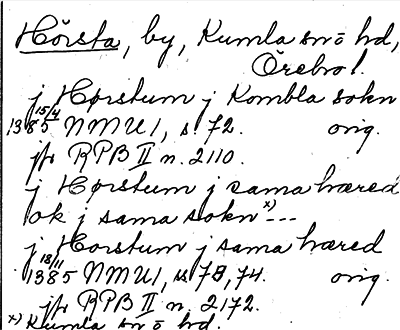 Hörsta, by, Kumla sn ō hd,
Örebro l.
j Hørstum j Kombla sokn
15/4
1385 NMU 1, s. 72. orig.
jfr RPB II n. 2110.
j Hørstum j sama hæred
ok j sama sokn x) ---
j Horstum j sama hæred
18/11
1385 NMU 1, s. 73, 74. orig.
jfr RPB II n. 2172.
x) Kumla sn ō hd.